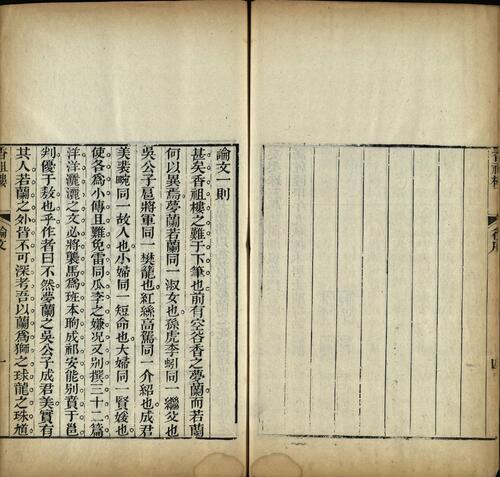 論文一則
甚矣香祖樓之難于下筆也前有空谷香之夢蘭而若蘭
何以異焉夢蘭若蘭同一淑女也孫虎李蚓同一繼父也
吳公子扈將軍同一樊籠也紅絲高駕同一介紹也成君
美裴畹同一故人也小婦同一短命也大婦同一賢媛也
使各爲小傳且難免雷同瓜李之嫌况又别撰三十二篇
洋洋灑灑之文必將襲馬爲班本昫成祁安能别賁于邕
判優于敖也乎作者曰不然夢蘭之吳公子成君美實有
其人若蘭之外皆不可深考吾以蘭爲獅之球龍之珠馗
香祖樓 論文 一